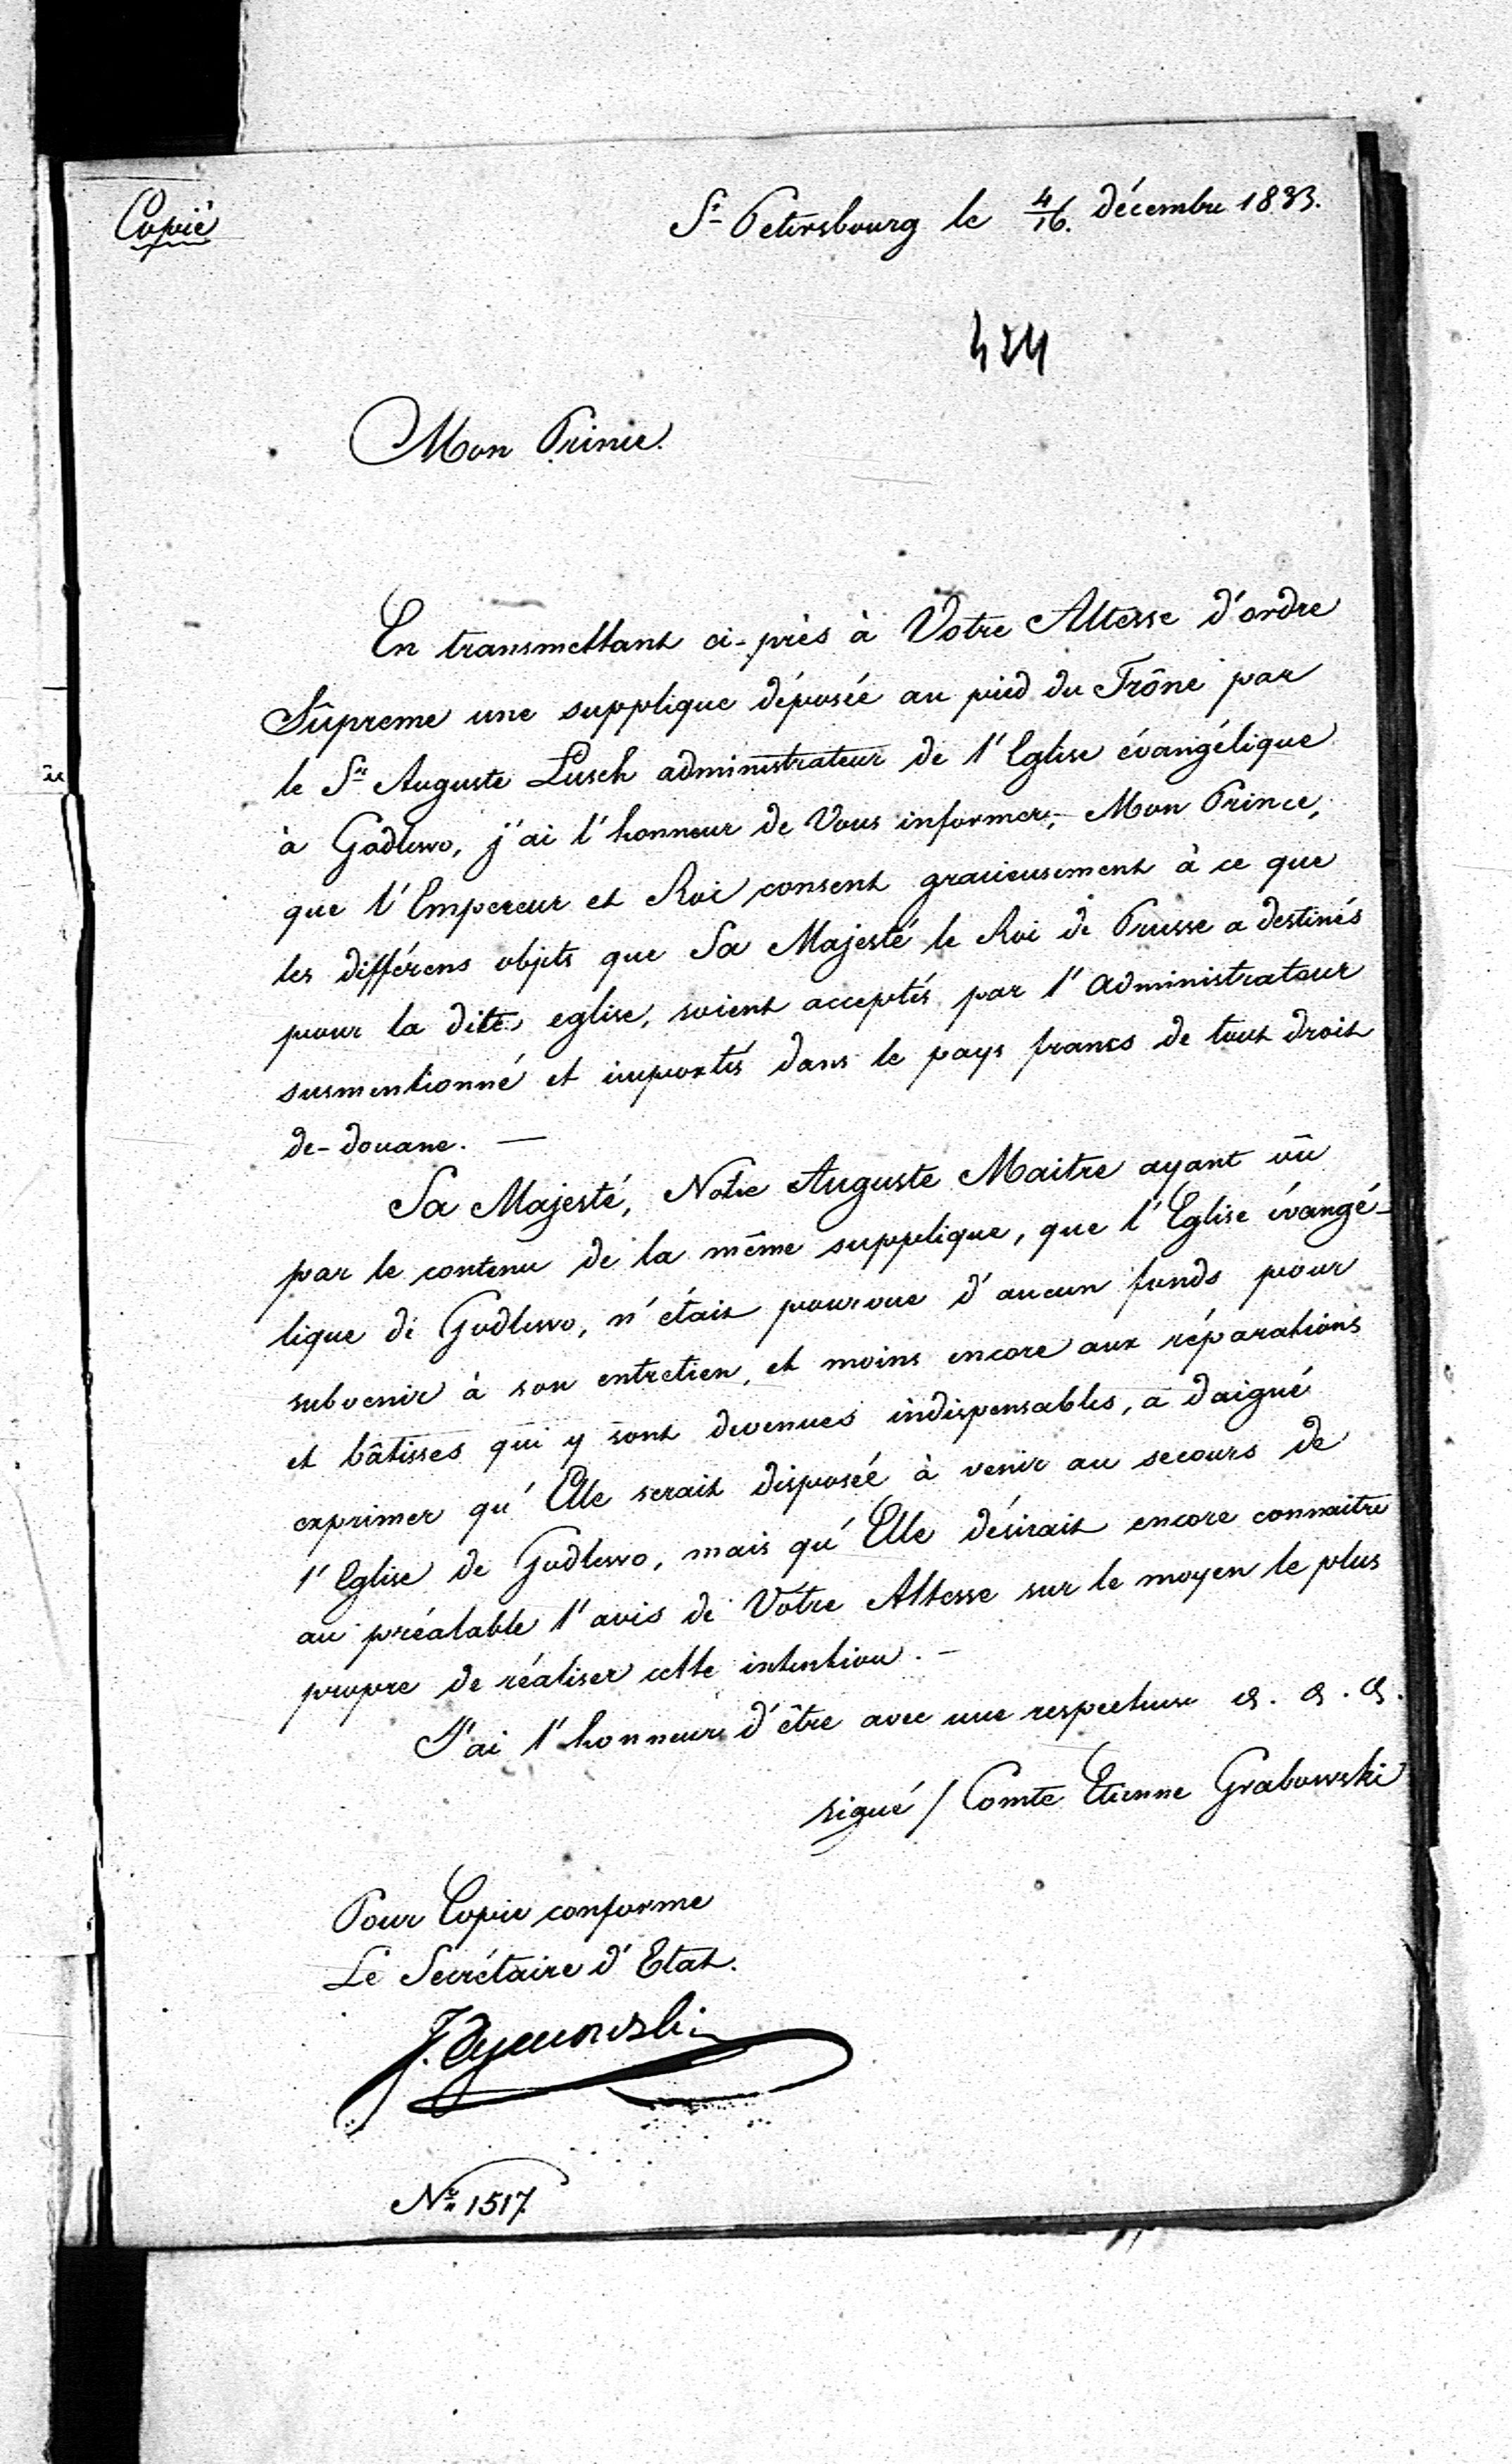 Copié
St Petersbourg le 4/16. décembre 1833.
424
Mon Prince.
En transmettant ci-près à Votre Altesse d'ordre
Sûpreme une supplique déposée au pied du Trône par
le Sr Auguste Lusch administrateur de l'Eglise évangélique
à Godlewo, j'ai l'honneur de Vous informer, Mon Prince,
que l'Empereur et Roi consent gracieusement à ce que
les différens objets que Sa Majesté le Roi de Prusse a destinés
pour la dite eglise, soient acceptés par l'administrateur
susmentionné et importés dans le pays francs de tout droit
de-douane. —
Sa Majesté, Notre Auguste Maitre ayant vû
par le contenu de la même supplique, que l'Eglise évangé-
lique de Godlewo, n'était pourvue d'aucun fonds pour
subvenir à son entretien, et moins encore aux réparations
et bâtisses qui y sont devenues indispensables, a daigné
exprimer qu'Elle serait disposée à venir au secours de
l'Eglise de Godlewo, mais qu'Elle désirait encore connaitre
au préalable l'avis de Votre Altesse sur le moyen le plus
propre de réaliser cette intention. —
J'ai l'honneur d'être avec une respectueuse &. &. &.
signé / Comte Etienne Grabowski
Pour Copie conforme
Le Secrétaire d'Etat.
J. Tymowski
Nr 1517